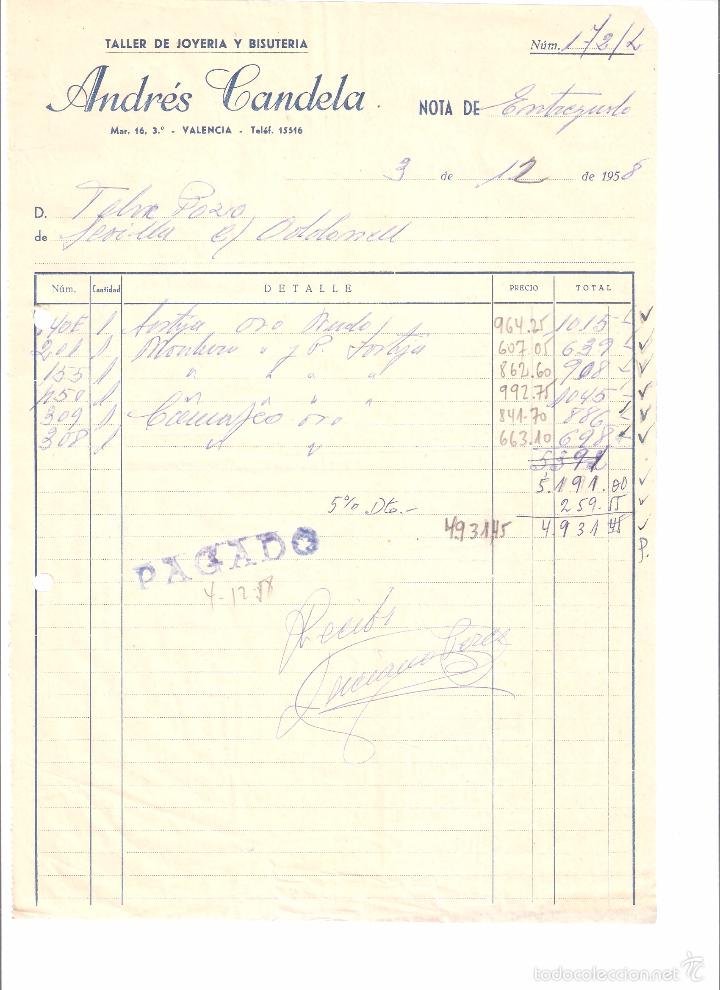 TALLER DE JOYERIA Y BISUTERIA
Núm. 172/L
Andrés Candela
NOTA DE
Mar. 16, 3.º - VALENCIA - Teléf. 15516
3 de 12 de 1958
D. Pozo
de Sevilla c/
Núm. Cantidad DETALLE PRECIO TOTAL
408 1 oro 964.25 1015
201 1 607.05 639
155 1 " " " 862.60 908
1 " " " 992.75 1045
309 1 Camafeo oro 841.70 886
308 1 " " 663.10 698
5391
5.191.00
5% Dto.- 259.55
4.931,45 4.931.45
P.
PAGADO
4-12-58
Recibí
todocoleccion.net